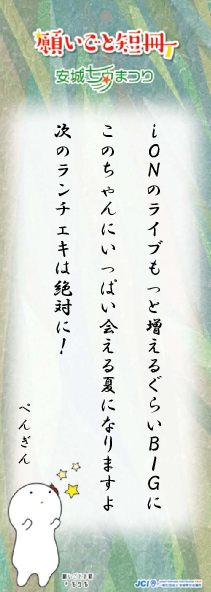 願いごと短冊
安城七夕まつり
iONのライブもっと増えるぐらいBIGに
このちゃんにいっぱい会える夏になりますよ
次のランチェキは絶対に！
ぺんぎん
JCI